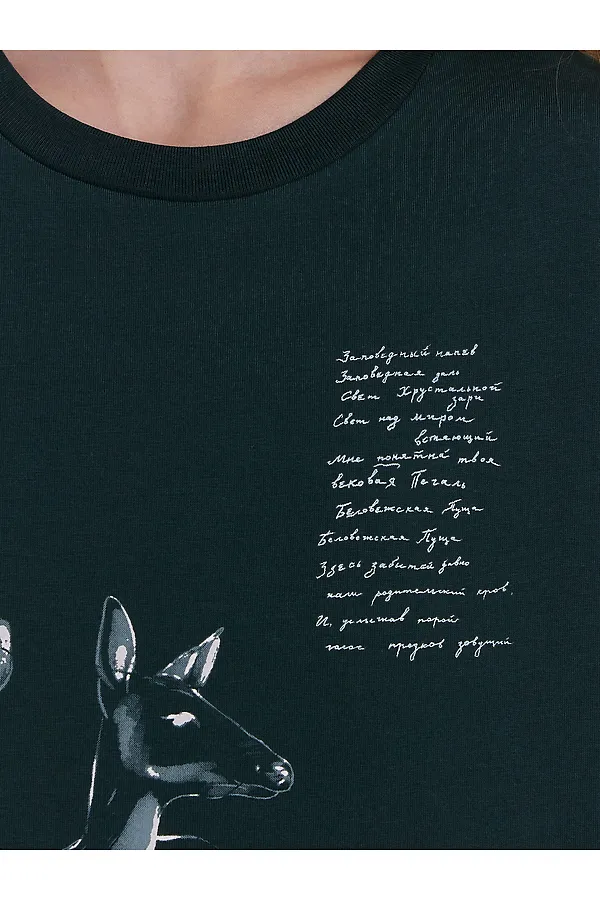 Заповедный напев
Заповедная даль
Свет Хрустальной
зари
Свет над миром
встающий
Мне понятна твоя
вековая Печаль
Беловежская Пуща
Беловежская Пуща
Здесь забытый давно
наш родительский кров.
И, услышав порой
голос предков зовущий